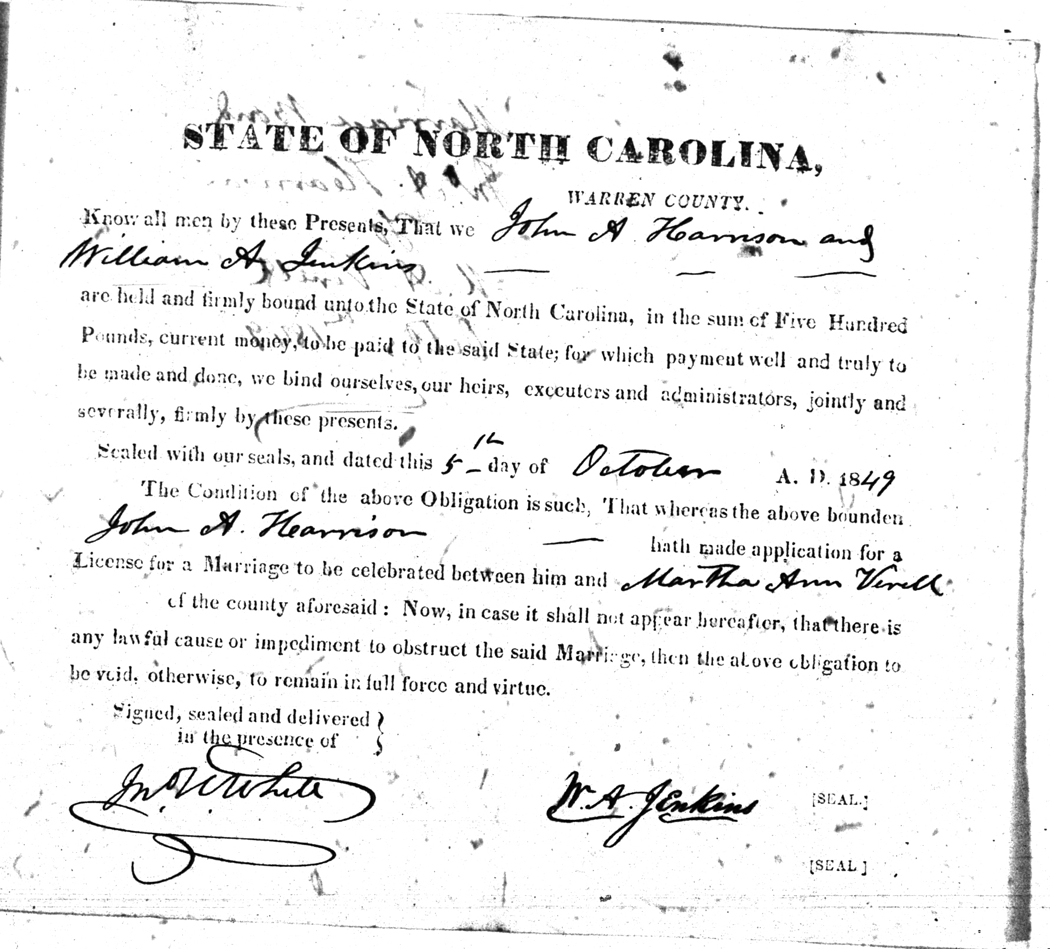 STATE OF NORTH CAROLINA,
WARREN COUNTY.
Know all men by these Presents, That we John A Harrison and
William A. Jenkins
are held and firmly bound unto the State of North Carolina, in the sum of Five Hundred
Pounds, current money, to be paid to the said State; for which payment well and truly to
be made and done, we bind ourselves, our heirs, executers and administrators, jointly and
severally, firmly by these presents.
Sealed with our seals, and dated this 5th day of October A. D. 1849
The Condition of the above Obligation is such, That whereas the above bounden
John A. Harrison hath made application for a
License for a Marriage to be celebrated between him and Martha Ann Verell
of the county aforesaid: Now, in case it shall not appear hereafter, that there is
any lawful cause or impediment to obstruct the said Marriage, then the above obligation to
be void, otherwise, to remain in full force and virtue.
Signed, sealed and delivered
in the presence of
Jno White
W. A. Jenkins [SEAL.]
[SEAL]